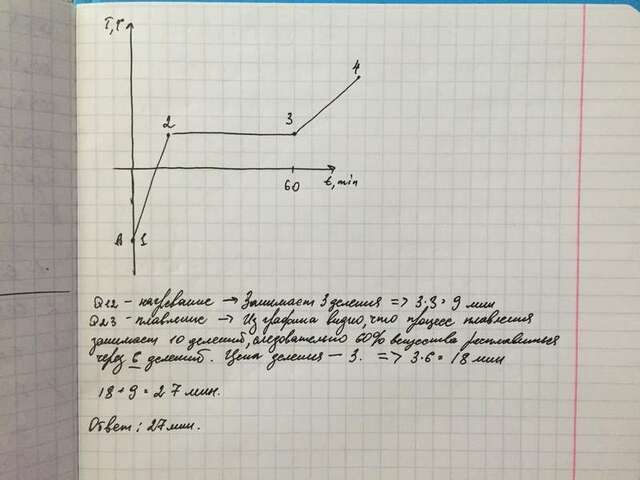 T, °C
4
2
3
60
t, min
A
1
Q12 - нагревание → Занимает 3 деления => 3·3 = 9 мин
Q23 - плавление → Из графика видно, что процесс плавления
занимает 10 делений, следовательно 60% вещества расплавиться
через 6 делений. Цена деления — 3. => 3·6 = 18 мин
18 + 9 = 27 мин.
Ответ: 27 мин.